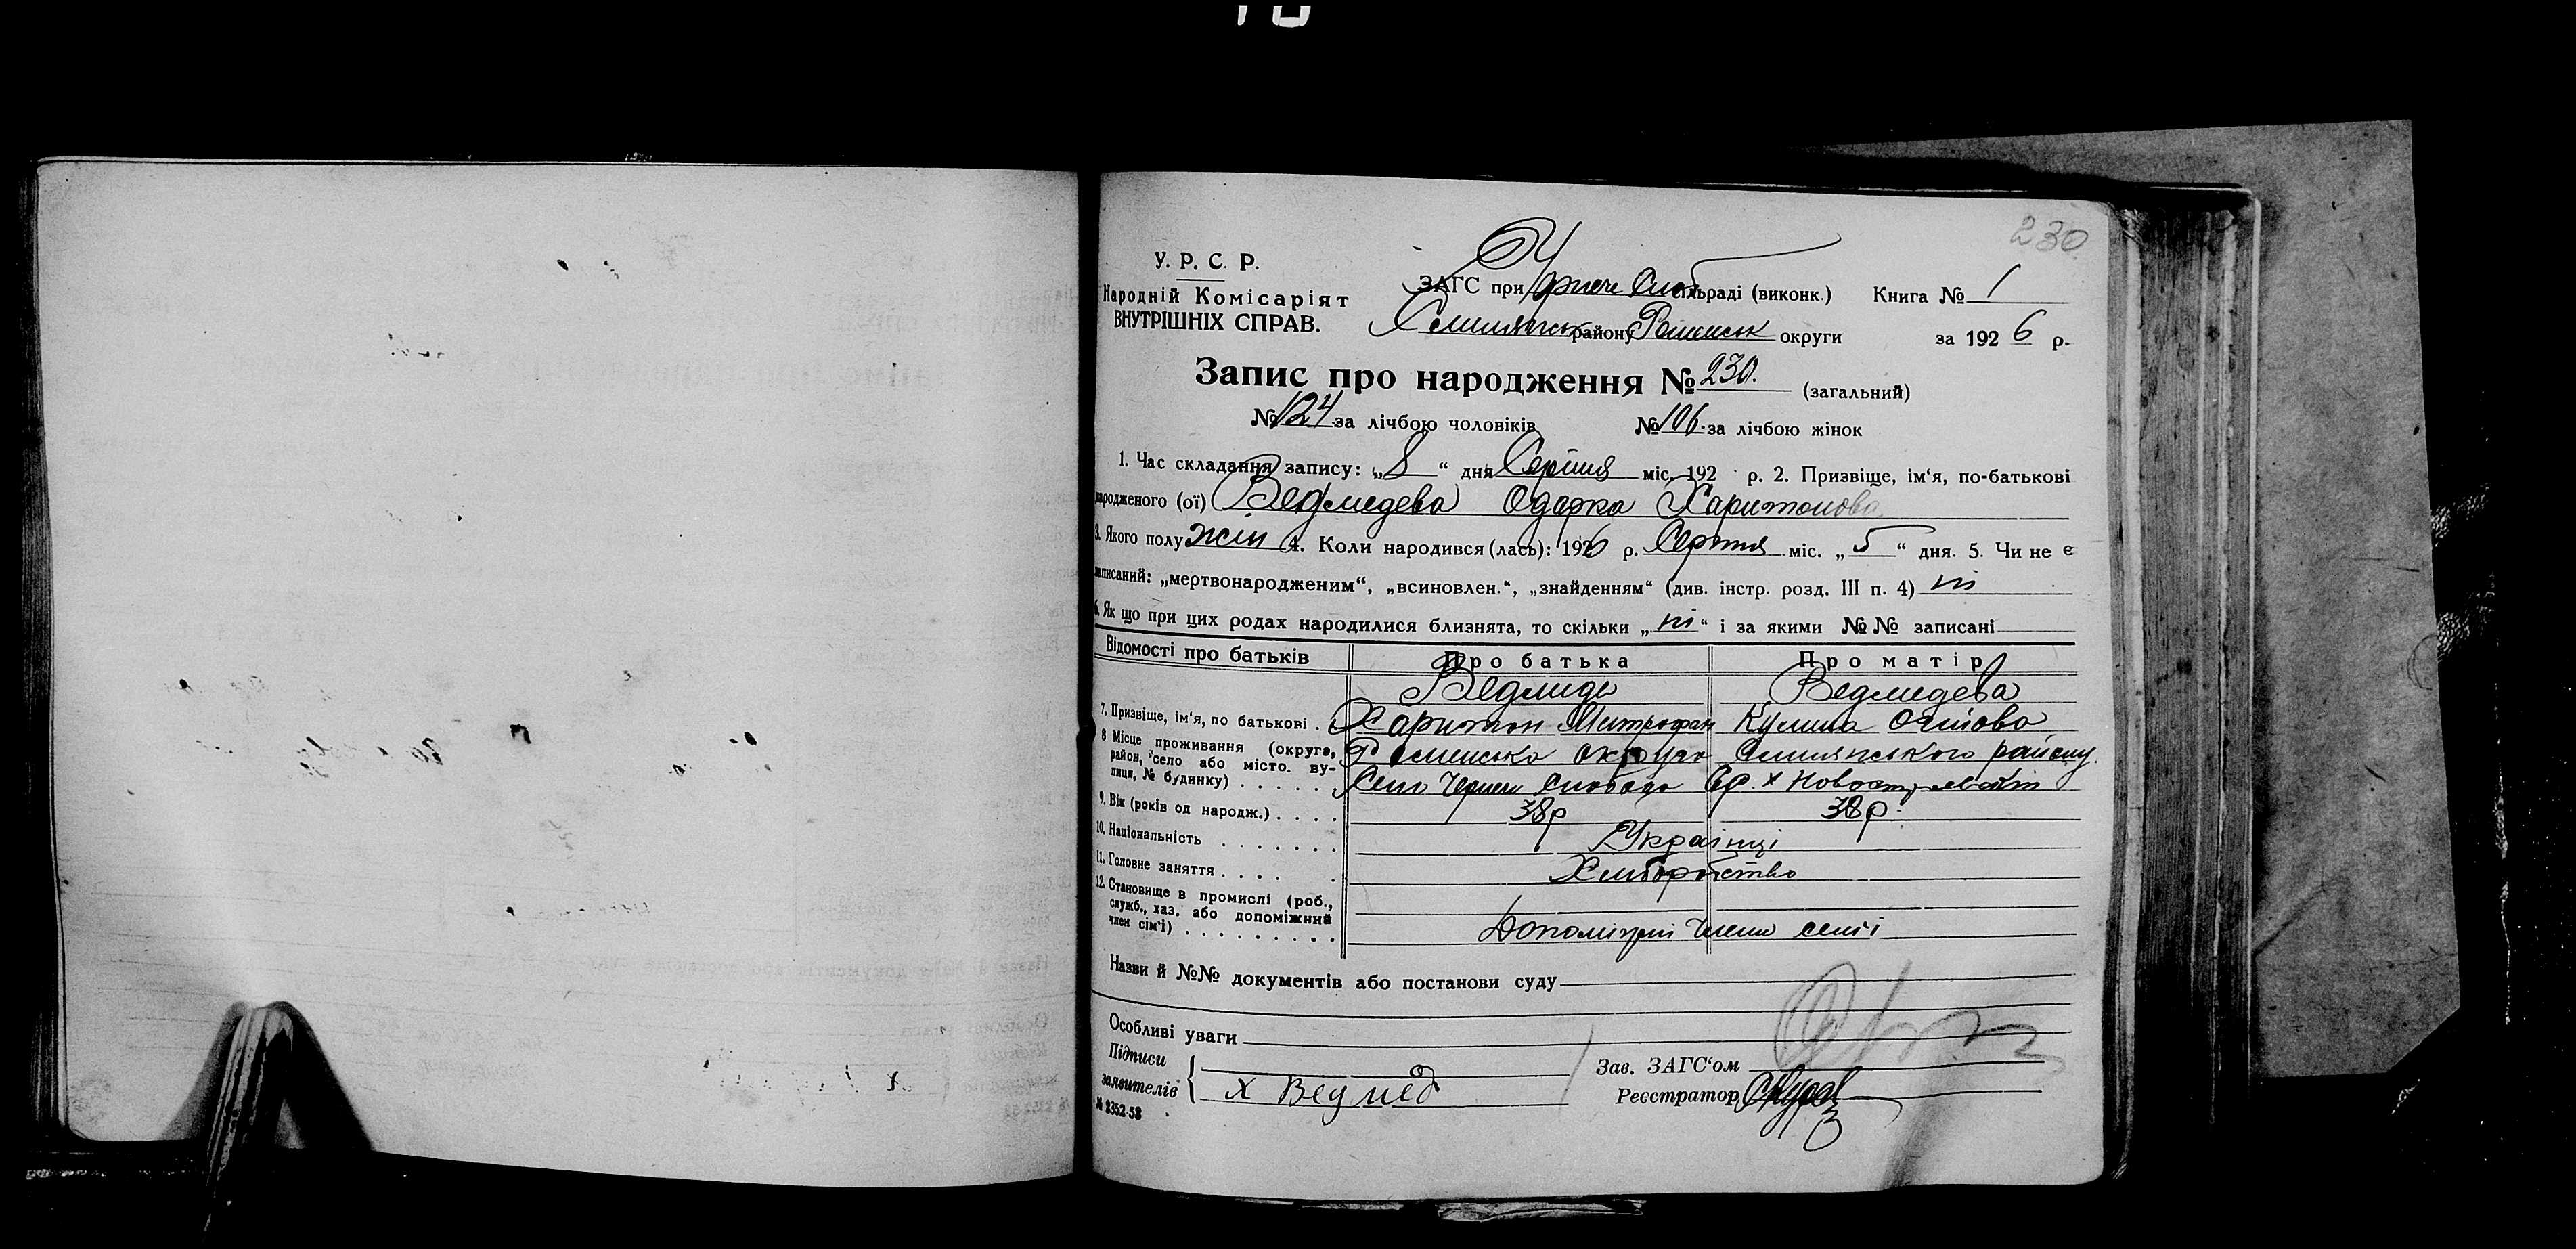 230
У. Р. С. Р.
Народній Комісаріят
ВНУТРІШНІХ СПРАВ.
ЗАГС при Чрнече Слоб сільраді (виконк.) Книга № 1
Смілянськ району Роменськ округи за 1926 р.
Запис про народження № 230. (загальний)
№ 124 за лічбою чоловіків № 106. за лічбою жінок
1. Час складання запису: „8“ дня Серпня міс. 192 р. 2. Призвіще, ім‘я, по-батькові
народженого (ої) Ведмедева Одарка Харитонова
3. Якого полу жін 4. Коли народився (лась): 1926 р. Серпня міс. „5“ дня. 5. Чи не є
записаний: „мертвонародженим“, „всиновлен.“, „знайденням“ (див. інстр. розд. III п. 4) ні
6. Як що при цих родах народилися близнята, то скільки „ні“ і за якими №№ записані
Відомості про батьків Про батька Про матір
Ведмидь Ведмедева
7. Призвіще, ім‘я, по батькові . Харитон Митрофан Кулина
8 Місце проживання (округа, район, село або місто, вулиця, № будинку) . . . . . Роменська округа Смілянського району
Село Чернеча Слобода х
9. Вік (років од народж.) . . . . 38р 38р.
10. Національність . . . . . . . Українці
11. Головне заняття . . . . . Хліборобство
12. Становище в промислі (роб., служб., хаз. або допоміжний член сім‘ї) . . . . . . . . .
Допоміжні члени семії
Назви й №№ документів або постанови суду
Особливі уваги
Підписи
заявителів
х Ведмед
Зав. ЗАГС‘ом
Реєстратор
№ 8352-58